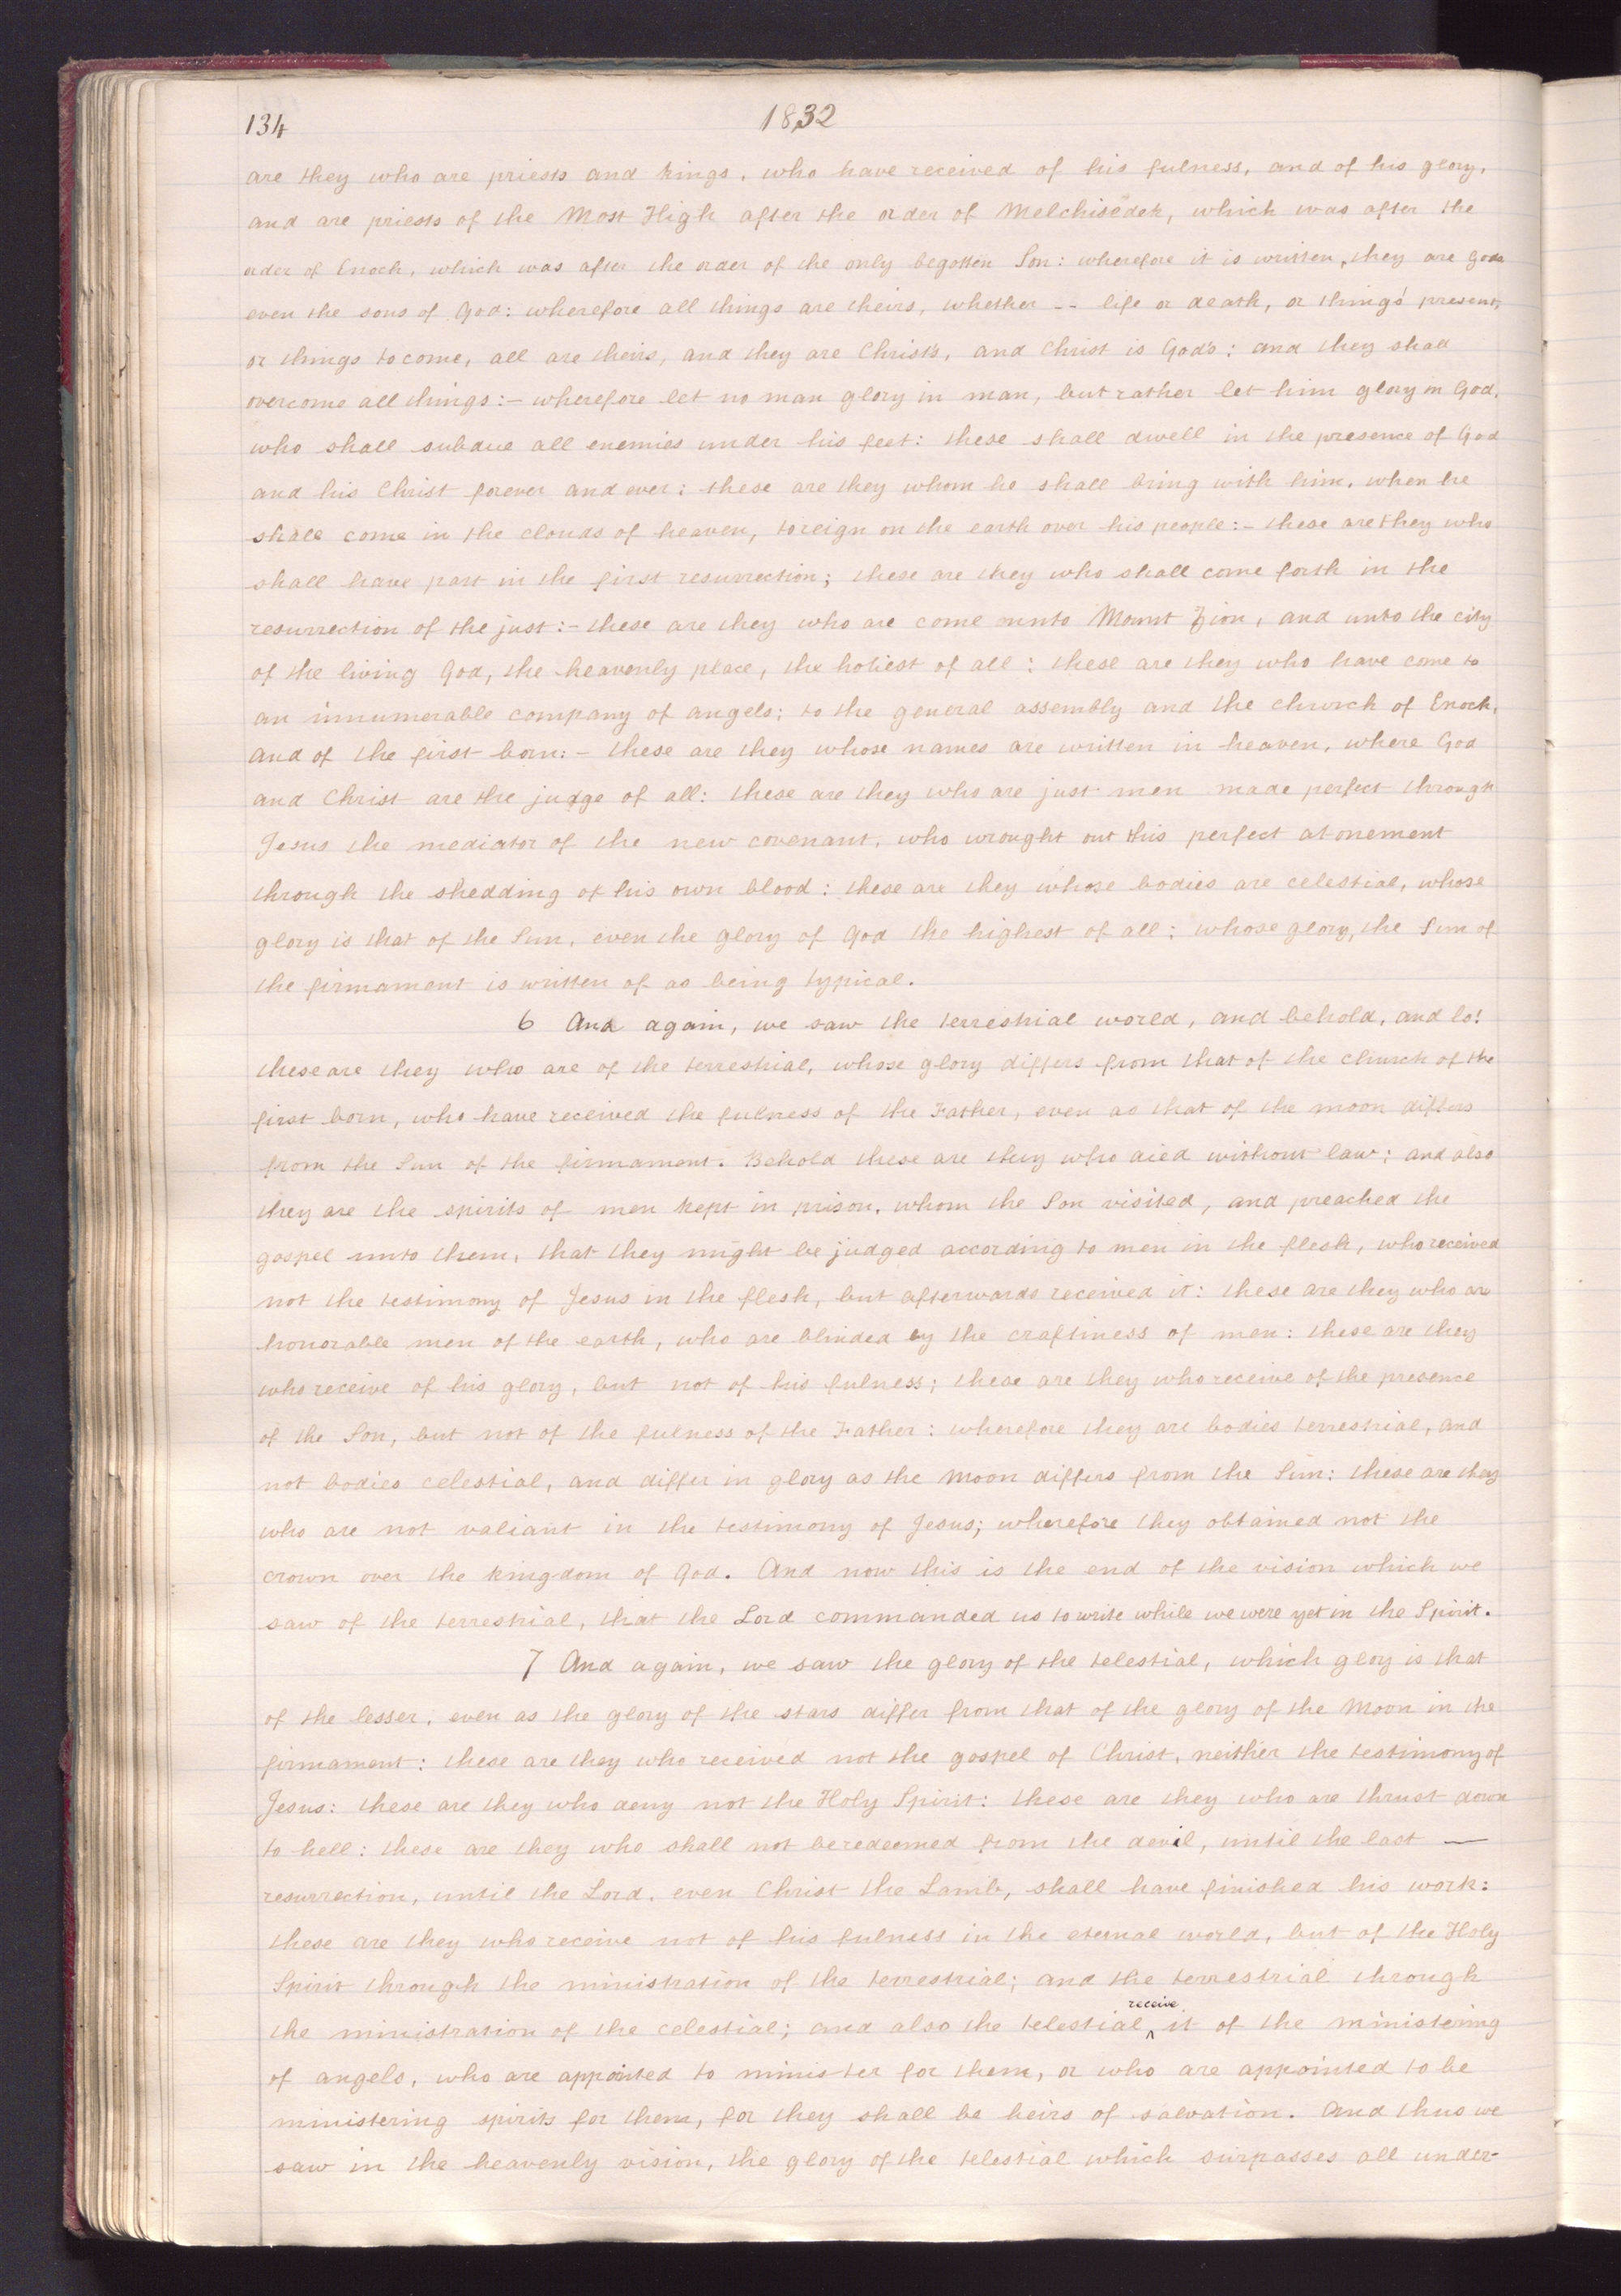 134
1832
are they who are priests and kings, who have received of his fulness, and of his glory,
and are priests of the Most High after the order of Melchisedek, which was after the
order of Enoch, which was after the order of the only begotten Son: wherefore it is written, they are gods
even the sons of God: wherefore all things are theirs, whether -- life or death, or things present,
or things to come, all are theirs, and they are Christ's, and Christ is God's: and they shall
overcome all things:- wherefore let no man glory in man, but rather let him glory in God,
who shall subdue all enemies under his feet: these shall dwell in the presence of God
and his Christ forever and ever: these are they whom he shall bring with him, when he
shall come in the clouds of heaven, to reign on the earth over his people:- these are they who
shall have part in the first resurrection; these are they who shall come forth in the
resurrection of the just:- these are they who are come unto Mount Zion, and unto the city
of the living God, the heavenly place, the holiest of all: these are they who have come to
an innumerable company of angels; to the general assembly and the church of Enoch,
and of the first born:- these are they whose names are written in heaven, where God
and Christ are the judge of all: these are they who are just men made perfect through
Jesus the mediator of the new covenant, who wrought out this perfect atonement
through the shedding of his own blood: these are they whose bodies are celestial, whose
glory is that of the Sun, even the glory of God the highest of all: whose glory, the Sun of
the firmament is written of as being typical.
6 And again, we saw the terrestrial world, and behold, and lo!
these are they who are of the terrestrial, whose glory differs from that of the church of the
first born, who have received the fulness of the Father, even as that of the moon differs
from the Sun of the firmament. Behold these are they who died without law: and also
they are the spirits of men kept in prison, whom the Son visited, and preached the
gospel unto them, that they might be judged according to men in the flesh, who received
not the testimony of Jesus in the flesh, but afterwards received it: these are they who are
honorable men of the earth, who are blinded by the craftiness of men: these are they
who receive of his glory, but not of his fulness; these are they who receive of the presence
of the Son, but not of the fulness of the Father: wherefore they are bodies terrestrial, and
not bodies celestial, and differ in glory as the Moon differs from the Sun: these are they
who are not valiant in the testimony of Jesus; wherefore they obtained not the
crown over the kingdom of God. And now this is the end of the vision which we
saw of the terrestrial, that the Lord commanded us to write while we were yet in the Spirit.
7 And again, we saw the glory of the telestial, which glory is that
of the lesser, even as the glory of the stars differ from that of the glory of the Moon in the
firmament: these are they who received not the gospel of Christ, neither the testimony of
Jesus: these are they who deny not the Holy Spirit: these are they who are thrust down
to hell: these are they who shall not be redeemed from the devil, until the last —
resurrection, until the Lord, even Christ the Lamb, shall have finished his work:
these are they who receive not of his fulness in the eternal world, but of the Holy
Spirit through the ministration of the terrestrial; and the terrestrial through
the ministration of the celestial; and also the telestial ^receive it of the ministering
of angels, who are appointed to minister for them, or who are appointed to be
ministering spirits for them, for they shall be heirs of salvation. And thus we
saw in the heavenly vision, the glory of the telestial which surpasses all under-